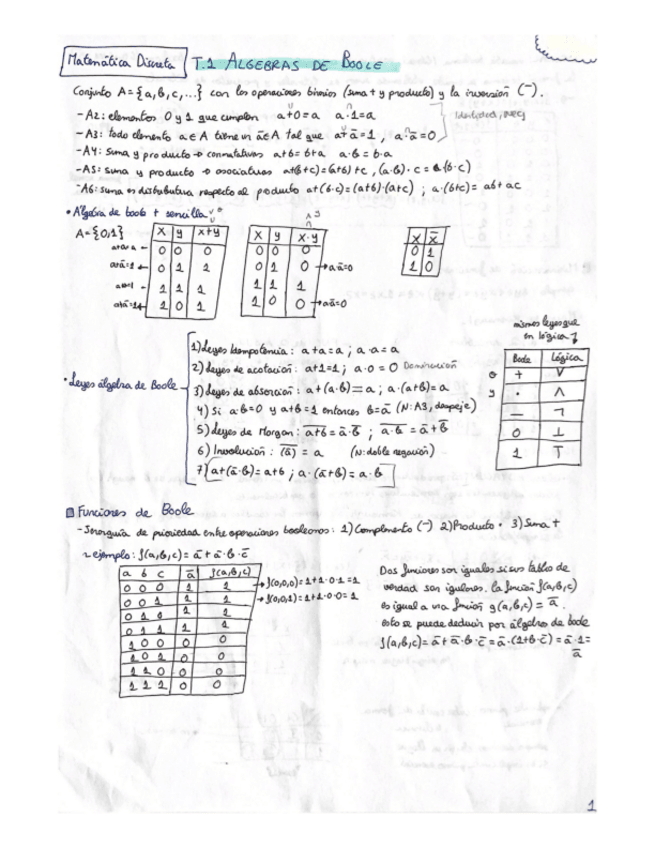 Matemática Discreta
T.1 ALGEBRAS DE BOOLE
Conjunto A={a,b,c,...} con las operaciones binarias (suma + y producto) y la inversión (¯).
-A2: elementos 0 y 1 que cumplen a+0=a a·1=a
Identidad,
-A3: todo elemento a∈A tiene un ā∈A tal que a+ā=1, a·ā=0
-A4: suma y producto → conmutativas a+b=b+a a·b=b·a
-A5: suma y producto → asociativas a+(b+c)=(a+b)+c, (a·b)·c=a·(b·c)
-A6: suma es distributiva respecto al producto a+(b·c)=(a+b)·(a+c); a·(b+c)=ab+ac
• Álgebra de boole + sencilla
A={0,1}
x y x+y
0 0 0
0 1 1
1 1 1
1 0 1
x y x·y
0 0 0
0 1 0 → a·ā=0
1 1 1
1 0 0 → a·ā=0
x x̄
0 1
1 0
• Leyes álgebra de Boole
1) Leyes Idempotencia: a+a=a; a·a=a
2) Leyes de acotación: a+1=1; a·0=0 Dominación
3) Leyes de absorción: a+(a·b)=a; a·(a+b)=a
4) Si a·b=0 y a+b=1 entonces b=ā (N:A3, despeje)
5) Leyes de Morgan: a̅+̅b̅=ā·b̄; a̅·̅b̅=ā+b̄
6) Involución: (ā)̅=a (N:doble negación)
7) a+(ā·b)=a+b; a·(ā+b)=a·b
mismas leyes que
en lógica
Boole Lógica
o + ∨
y · ∧
¯ ¬
0 ⊥
1 T
Funciones de Boole
-Jerarquía de prioridad entre operaciones booleanas: 1) Complemento (¯) 2) Producto · 3) Suma +
ejemplo: f(a,b,c)=ā+ā·b·c̄
a b c ā f(a,b,c)
0 0 0 1 1 → f(0,0,0)=1+1·0·1=1
0 0 1 1 1 → f(0,0,1)=1+1·0·0=1
0 1 0 1 1
0 1 1 1 1
1 0 0 0 0
1 0 1 0 0
1 1 0 0 0
1 1 1 0 0
Dos funciones son iguales si sus tablas de
verdad son iguales. la función f(a,b,c)
es igual a una función g(a,b,c)=ā.
esto se puede deducir por álgebra de boole
f(a,b,c)=ā+ā·b·c̄=ā·(1+b·c̄)=ā·1=
ā
1